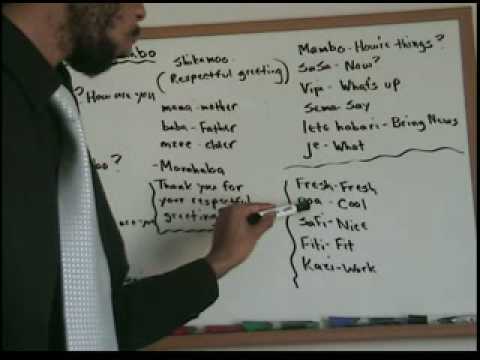 ? How are you
are you
Shikamoo
(Respectful greeting)
mama - mother
baba - Father
mzee - elder
- Marahaba
Thank you for
your respectful
greeting
Mambo - How're things?
SaSa - Now?
Vipi - What's up
Sema - Say
lete habari - Being News
je - What
Fresh - Fresh
poa - Cool
Safi - Nice
Fiti - Fit
Kazi - Work